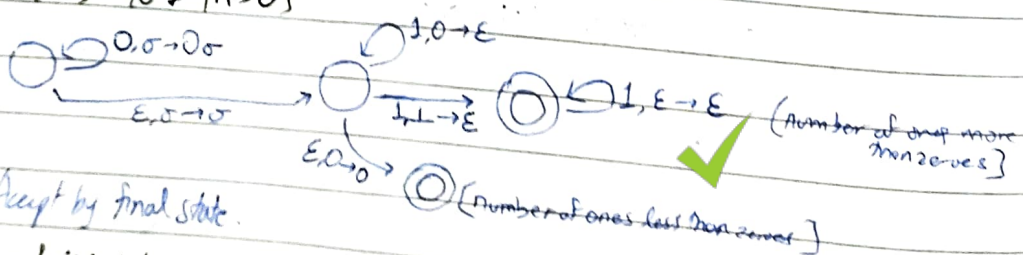 0,σ→0σ
1,0→ε
ε,σ→σ
1,⊥→ε
1,ε→ε
(number of ones more
than zeroes]
ε,0→0
(number of ones less than zeroes]
Accept by final state.